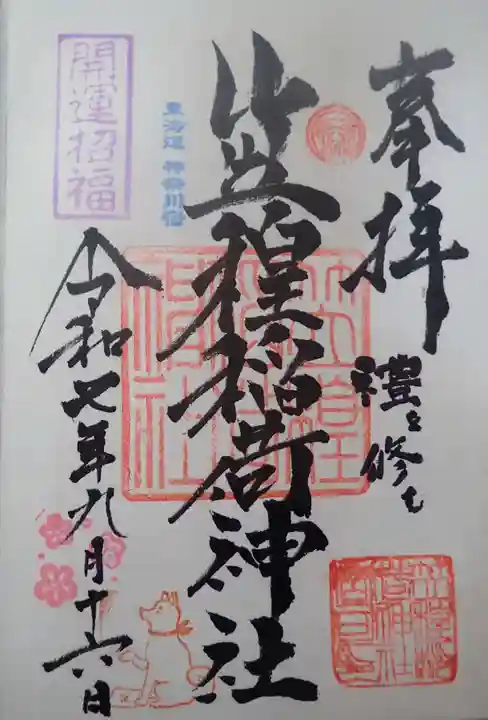 奉拝
禮を修む
笠䅣稲荷神社
東海道 神奈川宿
開運招福
令和七年九月十六日